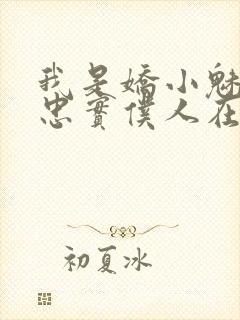 我是嬌小魅
忠實僕人在
初夏冰